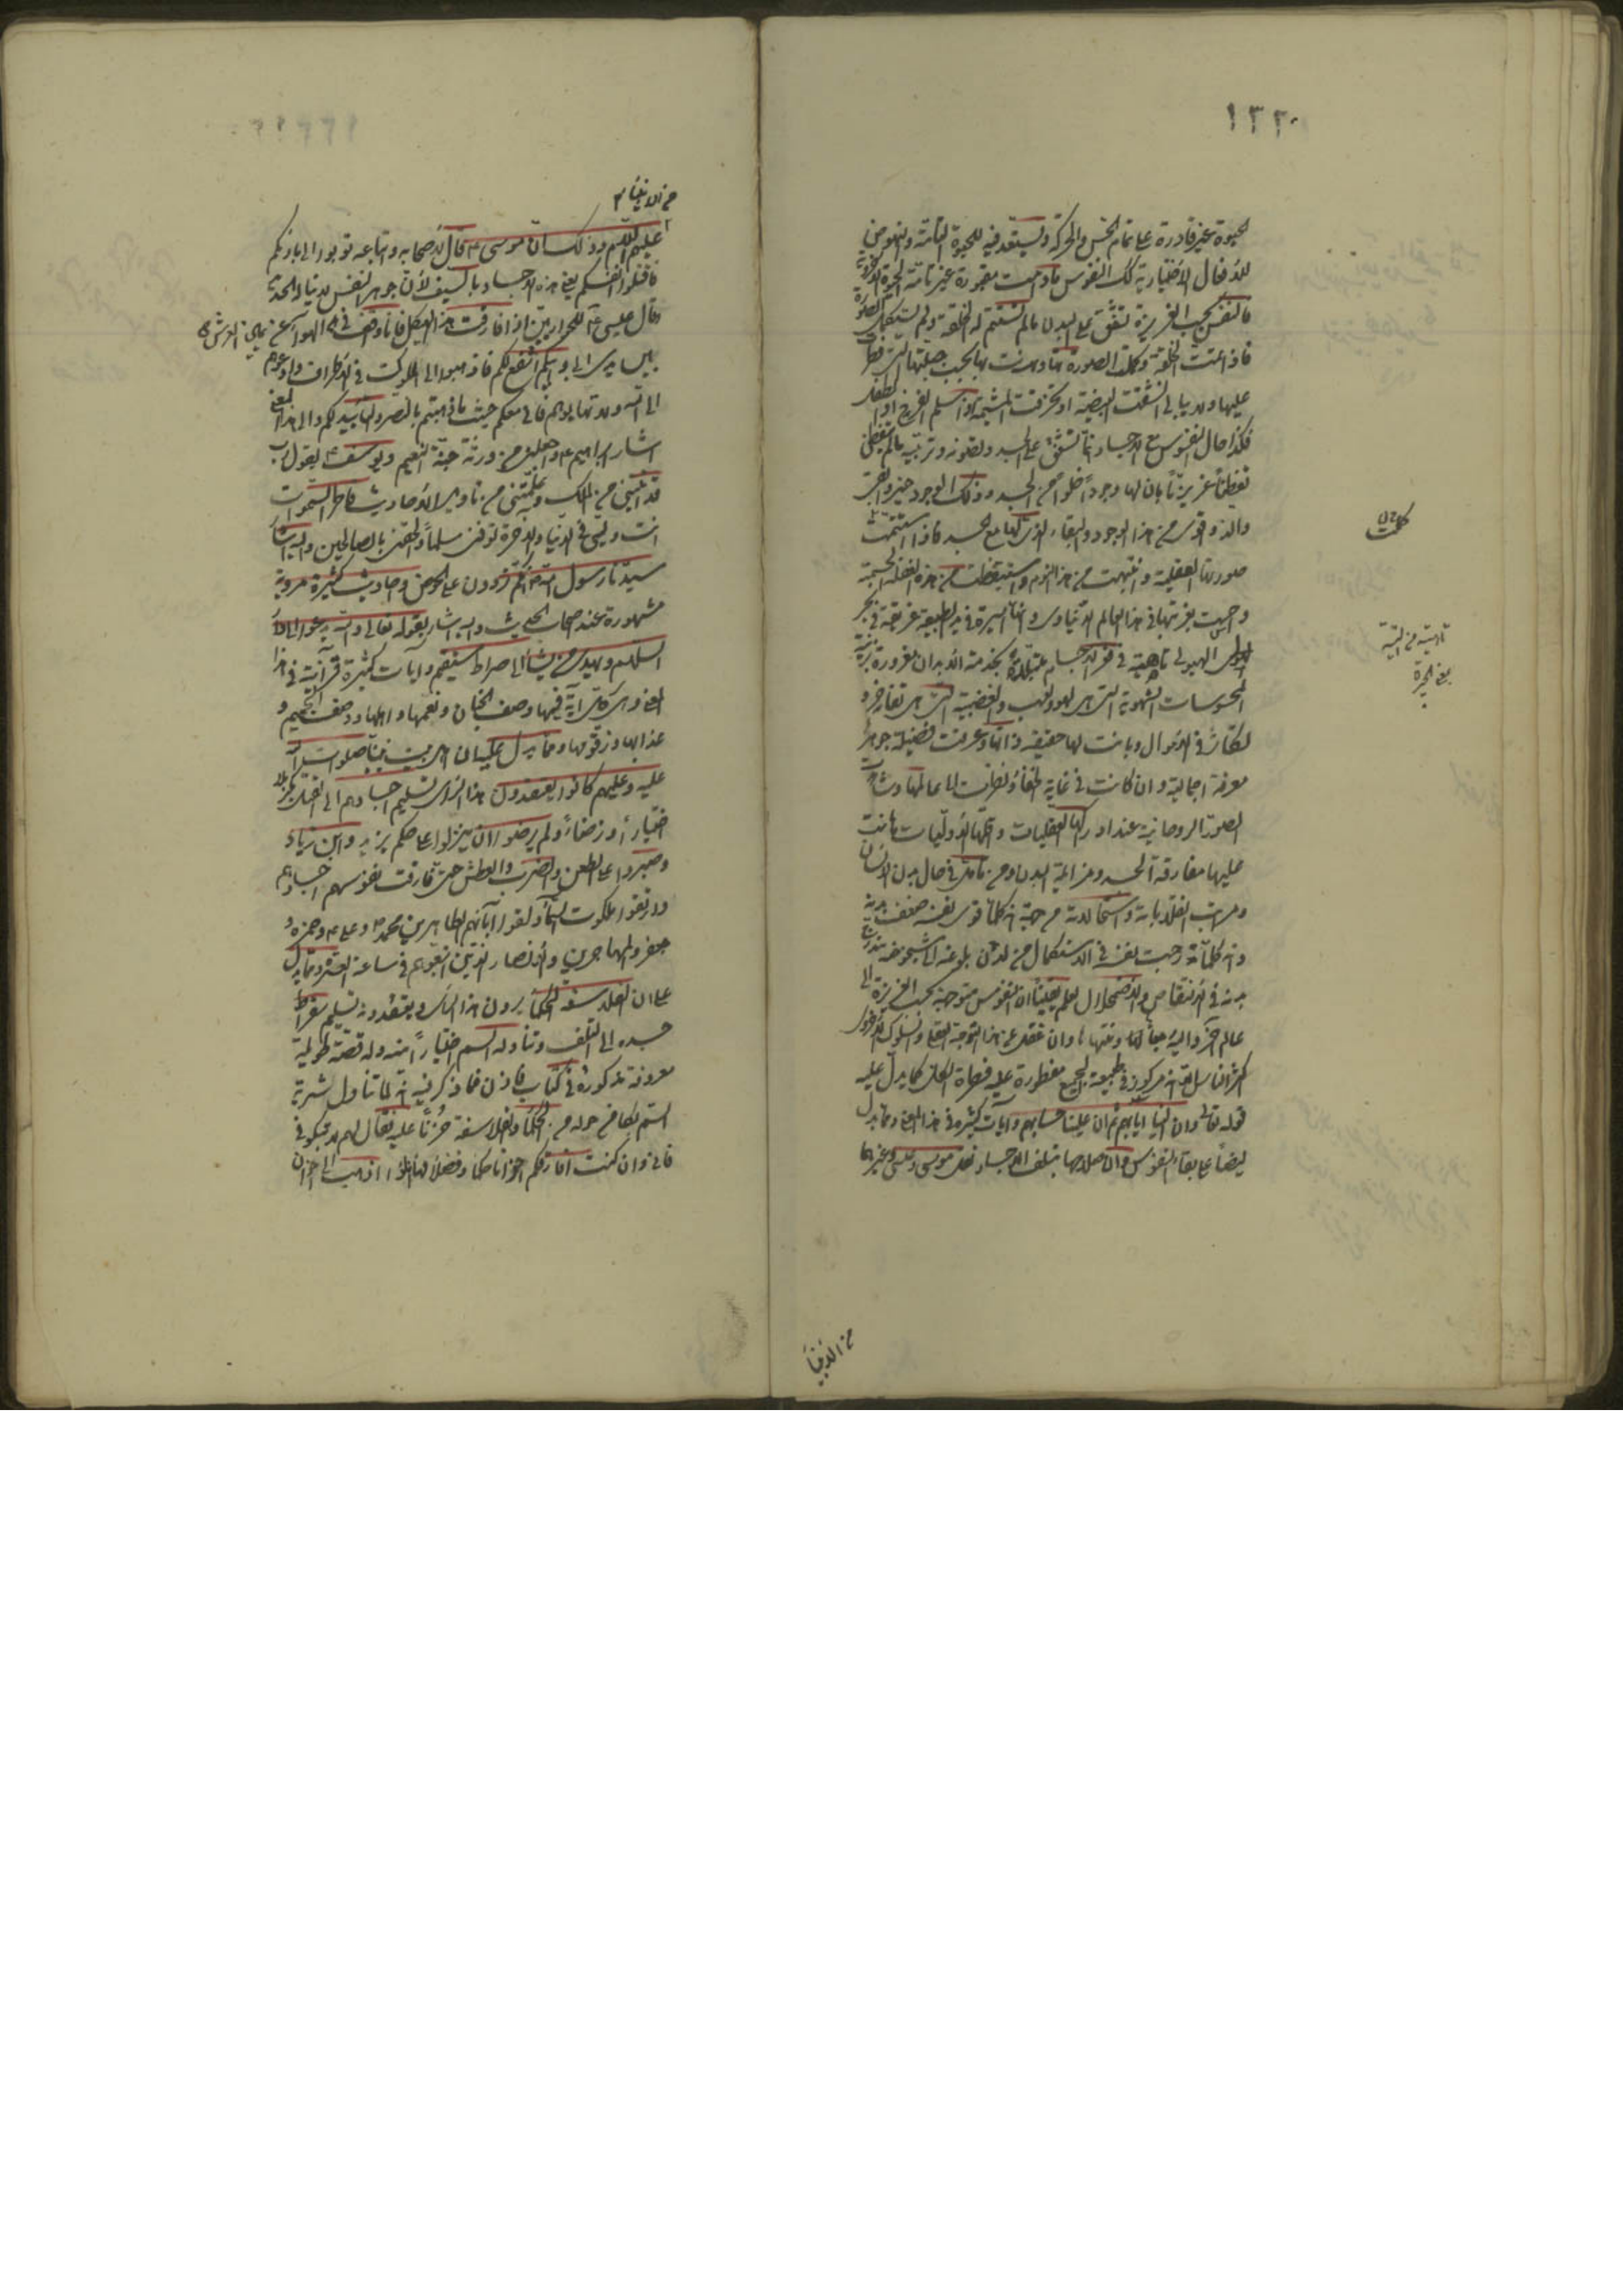 ١٣٢٠
الحيوة غير قادرة على تمام الحس والحركة وليستعد فيه للحيوة التامة والنهوض
للأفعال الأختيارية كك النفوس مادامت مقهورة غير تامة الحيوة الأخروية
فالنفس بحسب الغريزة تشفق على البدن مالم تستتم له الخلقة ولم يستكمل الصورة
فاذا تمت الخلقة وكملت الصورة تهاونت بها بحسب جبلتها التي فطرت
عليها ولا تبالي انشقت البيضة او تخرقت المشيمة اذا سلم الفرخ او الطفل
فكذا حال النفوس مع الاجساد انما تشفق على الجسد وتصونه وتربيه مالم يتفطن
تفطناً غريزياً بان لها وجوداً خلواً من الجسد وذلك الوجود خير وابقى
والذ واقوى من هذا الوجود والبقاء الذي لها مع الجسد فاذا استتمت
صورتها العقلية وانتبهت من هذا النوم واستيقظت من هذه الغفلة الجسمية
واحست بغربتها في هذا العالم الدنياوي وانها اسيرة في يد الطبيعة غريقة في بحر
الهيولى تائهة في قعر الاجسام مبتلاة بخدمة الأبدان مغرورة بزينة
المحسوسات الشهوية التي هي لهو ولعب والغضبية التي هي تفاخر و
تكاثر في الأموال وبانت لها حقيقة ذاتها وعرفت فضيلة جوهرها
معرفة اجمالية وان كانت في غاية الخفاء ونظرت الى عالمها وشاهدت
الصور الروحانية عند ادراكها العقليات واقلها الأوليات هانت
عليها مفارقة الجسد ومزايلة البدن ومن تأمل في حال بدن الانسان
ومراتب انقلاباته واستحالاته من جهة انه كلما قوى نفسه ضعف بدنه
وانه كلما توجهت نفسه في الاستكمال من لدن بلوغه الى شيخوخته تدرج
بدنه في الانتقاص والاضمحلال لعلم يقيناً ان النفوس متوجهة بحسب الغريزة الى
عالم آخر واليه رجعاها ومنتهاها وان غفل عن هذا التوجه النفسي والسلوك الأخروي
اكثر الناس لانه امر مركوز في طبيعة الجميع مفطورة عليه قضاة الكل كما يدل عليه
قوله تعالى ان الينا ايابهم ثم ان علينا حسابهم وآيات كثيرة في هذا المعنى ومما يدل
ايضاً على بقاء النفوس وان صلاحها بتلف الاجساد فعل موسى وعيسى وغيرهما
من الأنبياء
من الانبياء
عليهم السلام وذلك ان موسى ع قال لأصحابه واتباعه توبوا الى بارئكم
فاقتلوا انفسكم يعني هذه الاجساد بالسيف لأن جوهر النفس لا يناله الحديد
وقال عيسى ع للحواريين اذا فارقت هذا الهيكل فانا واقف في الهواء عن يمين العرش
بين يدي ابي وابيكم اشفع لكم فاذهبوا الى الملوك في الاطراف وادعوهم
الى الله ولا تهابوهم فاني معكم حيث ما ذهبتم بالنصر والتأييد لكم والى هذا المعنى
اشار ابراهيم ع واجعلني من ورثة جنة النعيم ويوسف ع بقوله رب
قد آتيتني من الملك وعلمتني من تأويل الأحاديث فاطر السموات
انت وليي في الدنيا والاخرة توفني مسلماً والحقني بالصالحين واليه اشار
سيدنا رسول الله ص انكم تردون على الحوض واحاديث كثيرة مروية
مشهورة عند اصحاب الحديث واليه اشار بقوله تعالى والله يدعو الى دار
السلام ويهدي من يشاء الى صراط مستقيم وآيات كثيرة قرآنية في هذا
المعنى وهي كل آية فيها وصف الجنان ونعيمها واهلها ووصف الجحيم و
عذابها وزقومها ومما يدل عليه ان اهل بيت نبينا صلوات الله
عليه وعليهم كانوا يعتقدون هذا الرأي تسليم اجسادهم الى القتل بكربلا
اختياراً ورضاءً ولم يرضوا ان ينزلوا على حكم يزيد وابن زياد
وصبروا على الطعن والضرب والعطش حتى فارقت نفوسهم اجسادهم
وارتقوا ملكوت السماء ولقوا آبائهم الطاهرين محمد ص وعلي ع وحمزة و
جعفر والمهاجرين والأنصار الذين اتبعوهم في ساعة العسرة ومما يدل
على ان الفلاسفة الحكماء يرون هذا الرأي ويعتقدونه تسليم سقراط
جسده الى التلف وتناوله السم اختياراً منه وله قصة طويلة
معروفة مذكورة في كتاب فاذن فما ذكر فيه انه لما تناول شربة
السم بكا من حوله من الحكماء والفلاسفة حزناً عليه فقال لهم لا تبكوا
فاني وان كنت افارقكم اخواناً حكماء وفضلاء فهذا انا اذهب الى اخوان